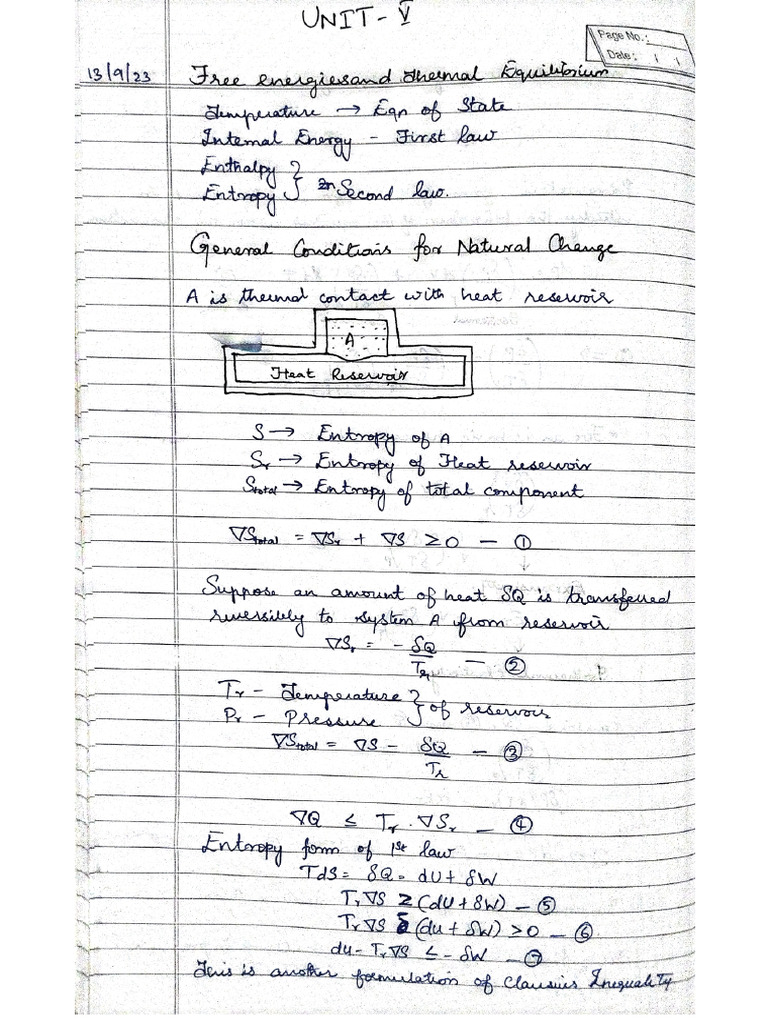 UNIT-V
Page No.:
Date:
13/9/23 Free energies and thermal Equilibrium
Temperature → Eqn of State
Internal Energy - First law
Enthalpy
Entropy } Second law.
General Conditions for Natural Change
A is thermal contact with heat reservoir
A
Heat Reservoir
S → Entropy of A
Sr → Entropy of Heat reservoir
Stotal → Entropy of total component
∇Stotal = ∇Sr + ∇S ≥ 0 - ①
Suppose an amount of heat δQ is transferred
reversibly to system A from reservoir
∇Sr = - δQ/Tr - ②
Tr - Temperature
Pr - Pressure } of reservoir
∇Stotal = ∇S - δQ/Tr - ③
∇Q ≤ Tr . ∇Sr - ④
Entropy form of 1st law
TdS = δQ = dU + δW
Tr∇S ≥ (dU + δW) - ⑤
Tr∇S (du + δW) > 0 - ⑥
du - Tr∇S ≤ - δW - ⑦
This is another formulation of Clausius Inequality